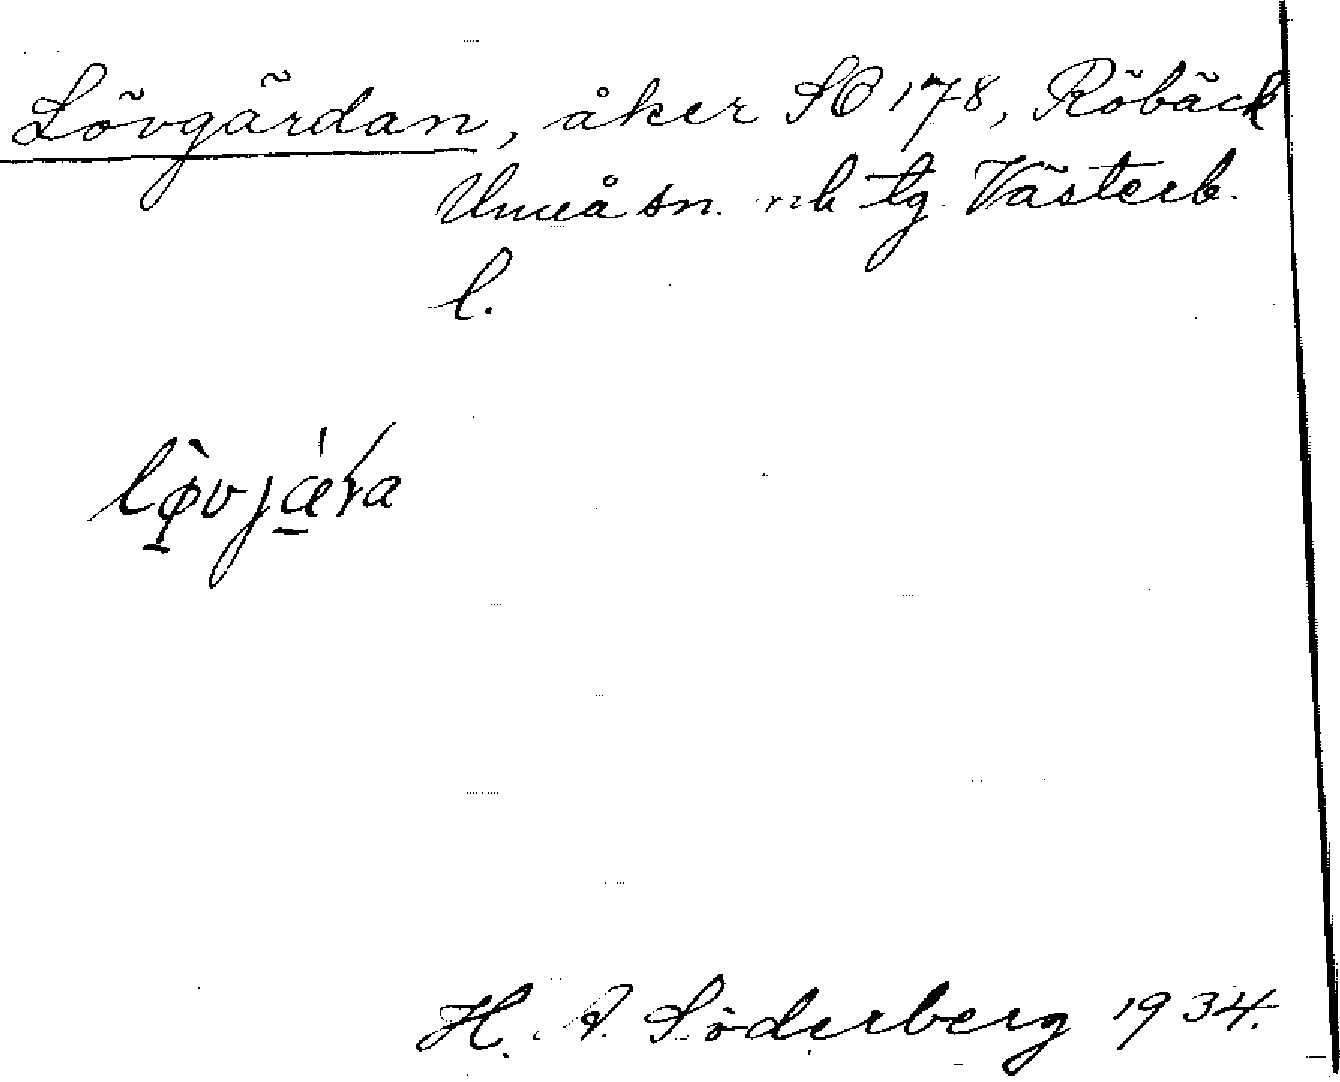 Lövgärdan, åker SO 178, Röbäck
Umeå sn. och tg Västerb.
l.
lø̀vjæ̀ra
H. Söderberg 1934.